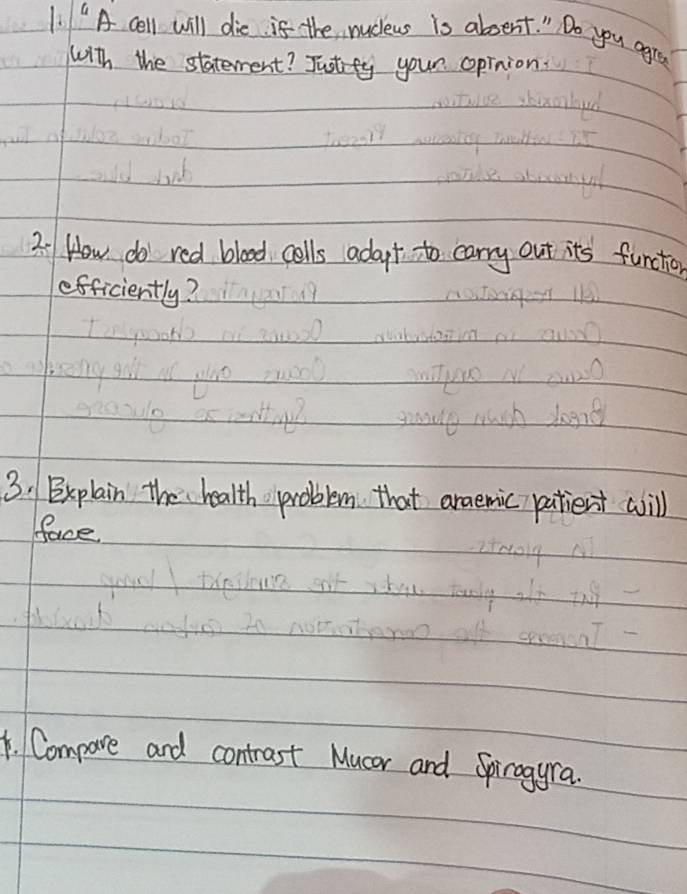 1. "A cell will die if the nucleus is absent." Do you agree
with the statement? Justify your opinion.
2. How do red blood cells adapt to carry out its function
efficiently?
3. Explain the health problem that anaemic patient will
face
4. Compare and contrast Mucor and Spirogyra.